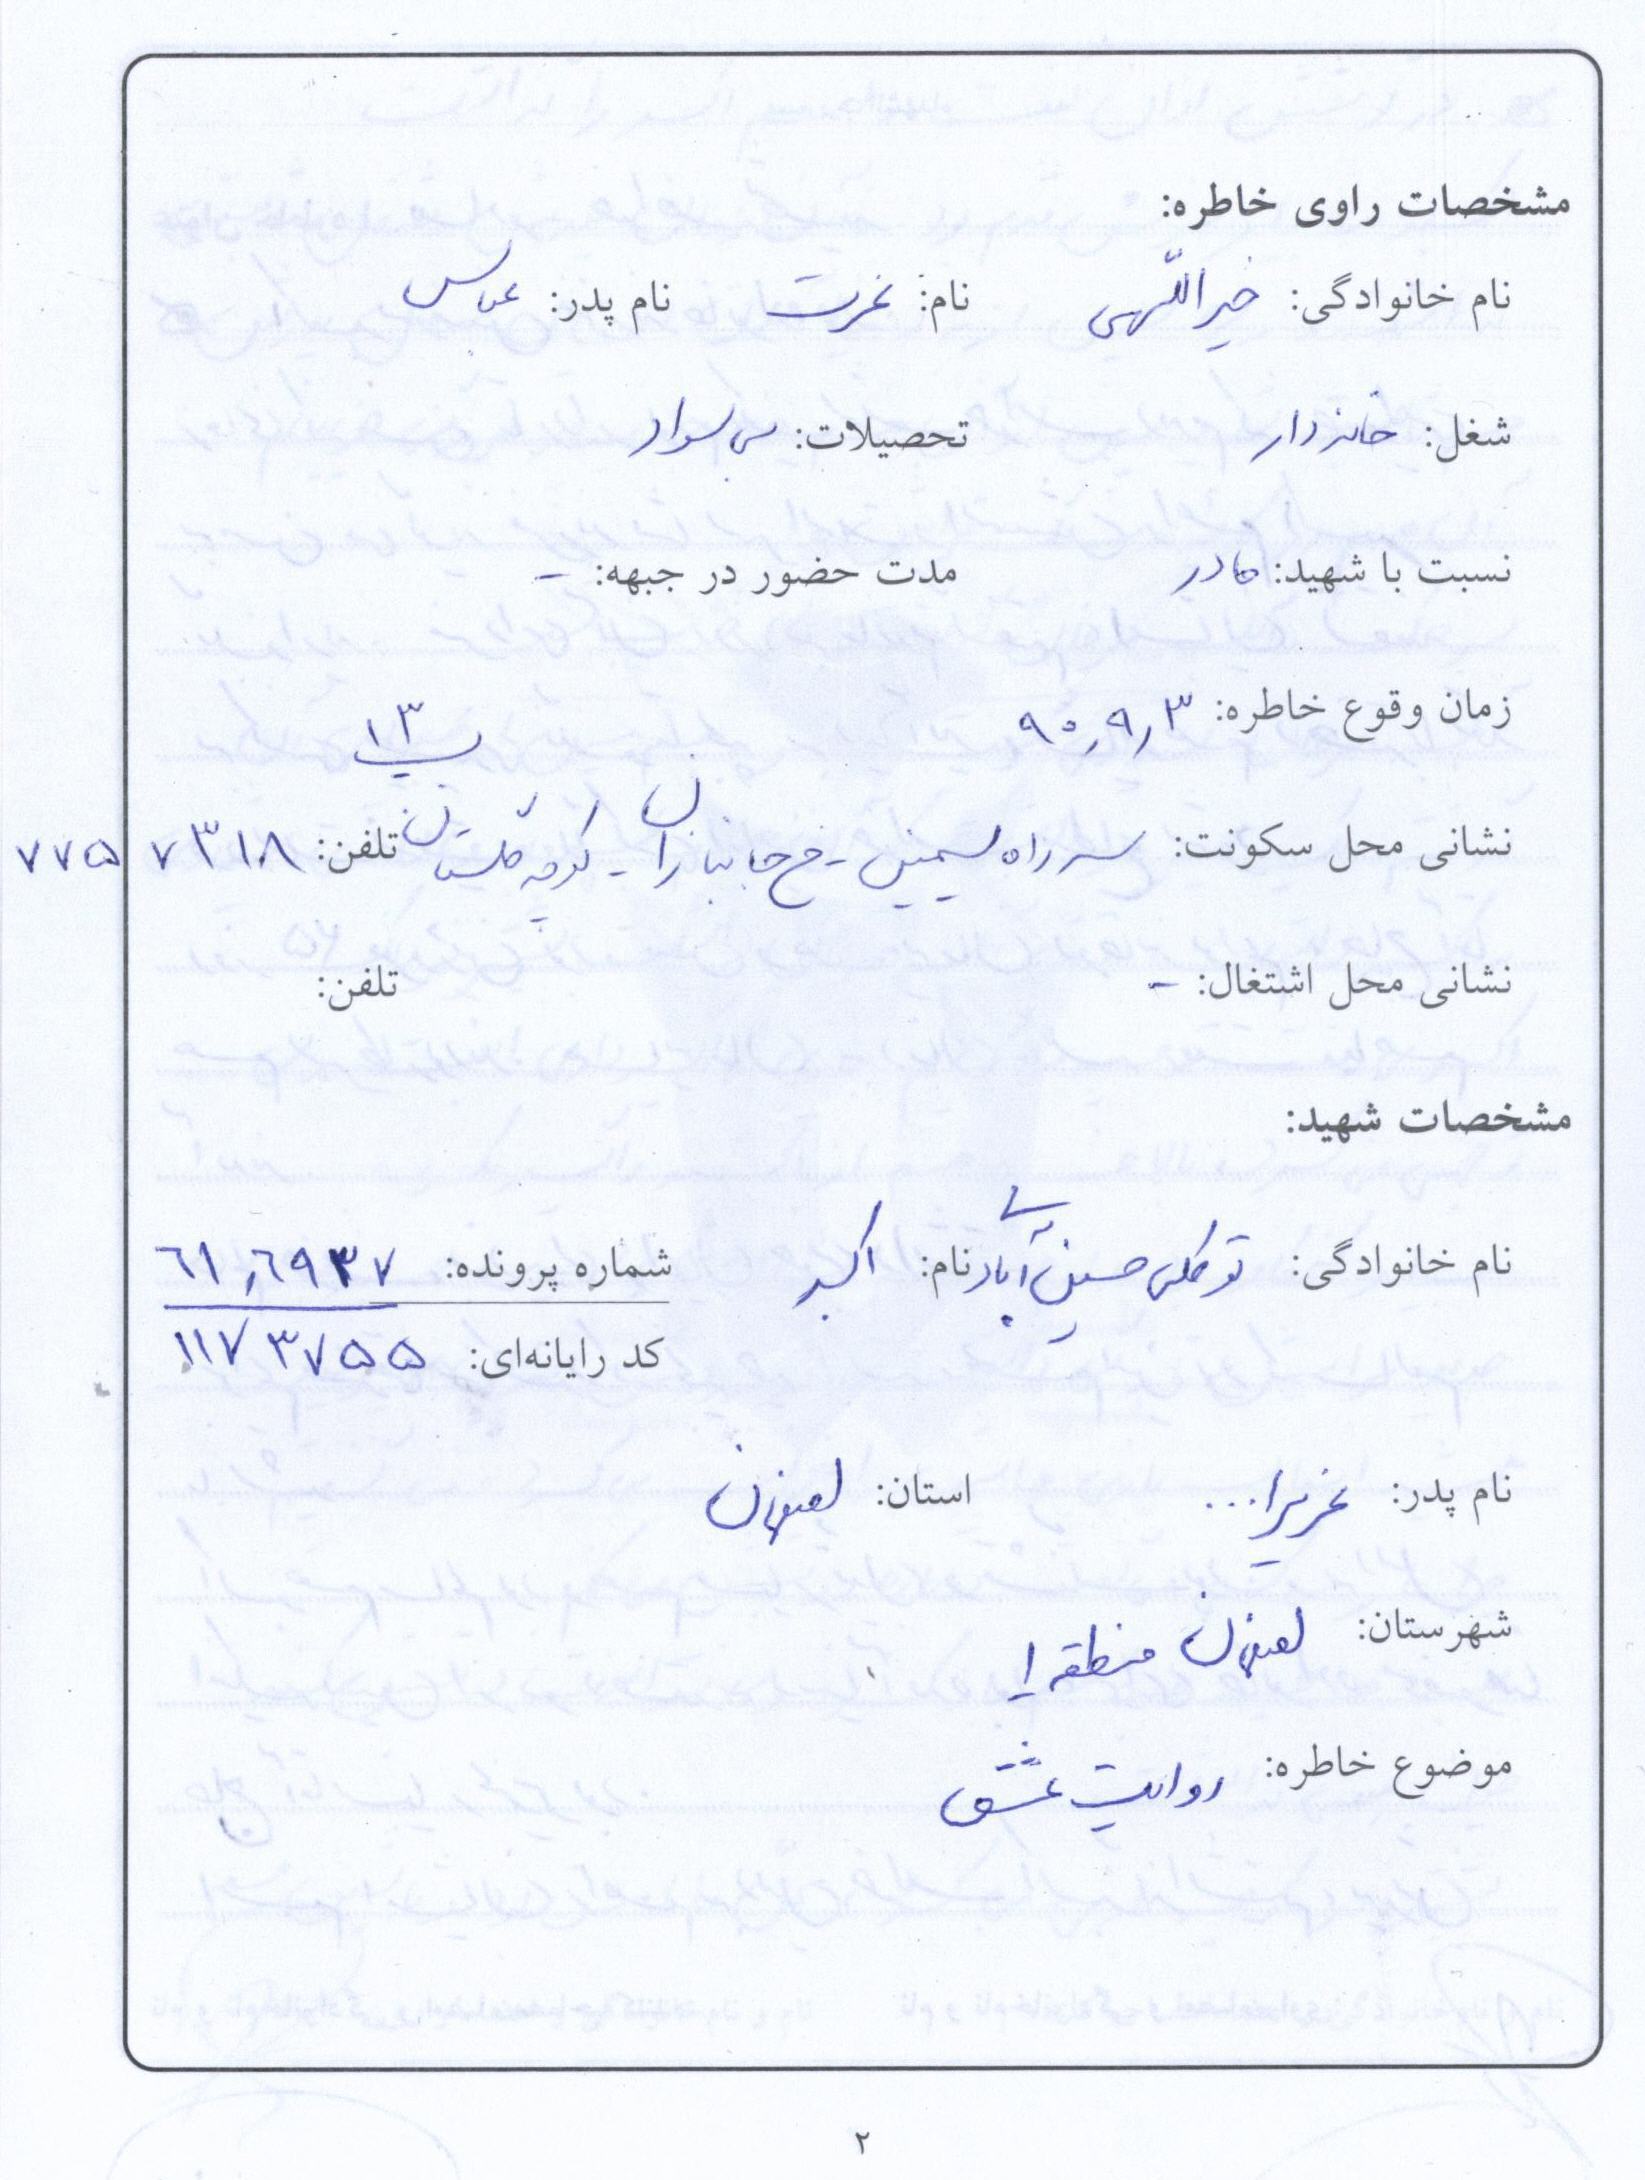 مشخصات راوی خاطره:
نام خانوادگی: خیراللهی نام: عزت نام پدر: عباس
شغل: خانه‌دار تحصیلات: بی‌سواد
نسبت با شهید: مادر مدت حضور در جبهه: -
زمان وقوع خاطره: ۹۰٫۹٫۳
نشانی محل سکونت: سه راه - خ جانبازان - کوچه گلستان پ ۱۳ تلفن: ۷۷۵۷۳۱۰۸
نشانی محل اشتغال: - تلفن:
مشخصات شهید:
نام خانوادگی: توکلی حسین آبادی نام: اکبر شماره پرونده:
کد رایانه‌ای: ۱۱۷۳۷۵۵
نام پدر: عزیزا... استان: تهران
شهرستان: تهران منطقه ۱
موضوع خاطره: روایت عشق
۲